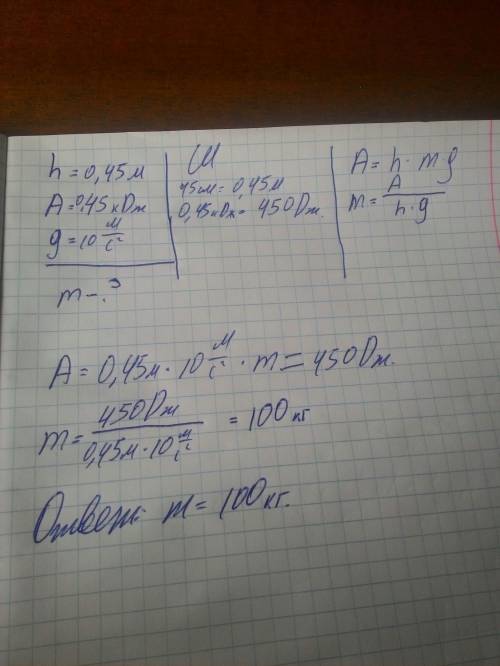 h = 0,45 м
A = 0,45 кДж
g = 10 м/с²
m - ?
СИ
45 см = 0,45 м
0,45 кДж = 450 Дж.
A = h · m g
m = A / h · g
A = 0,45 м · 10 м/с² · m = 450 Дж.
m = 450 Дж / 0,45 м · 10 м/с² = 100 кг
Ответ: m = 100 кг.